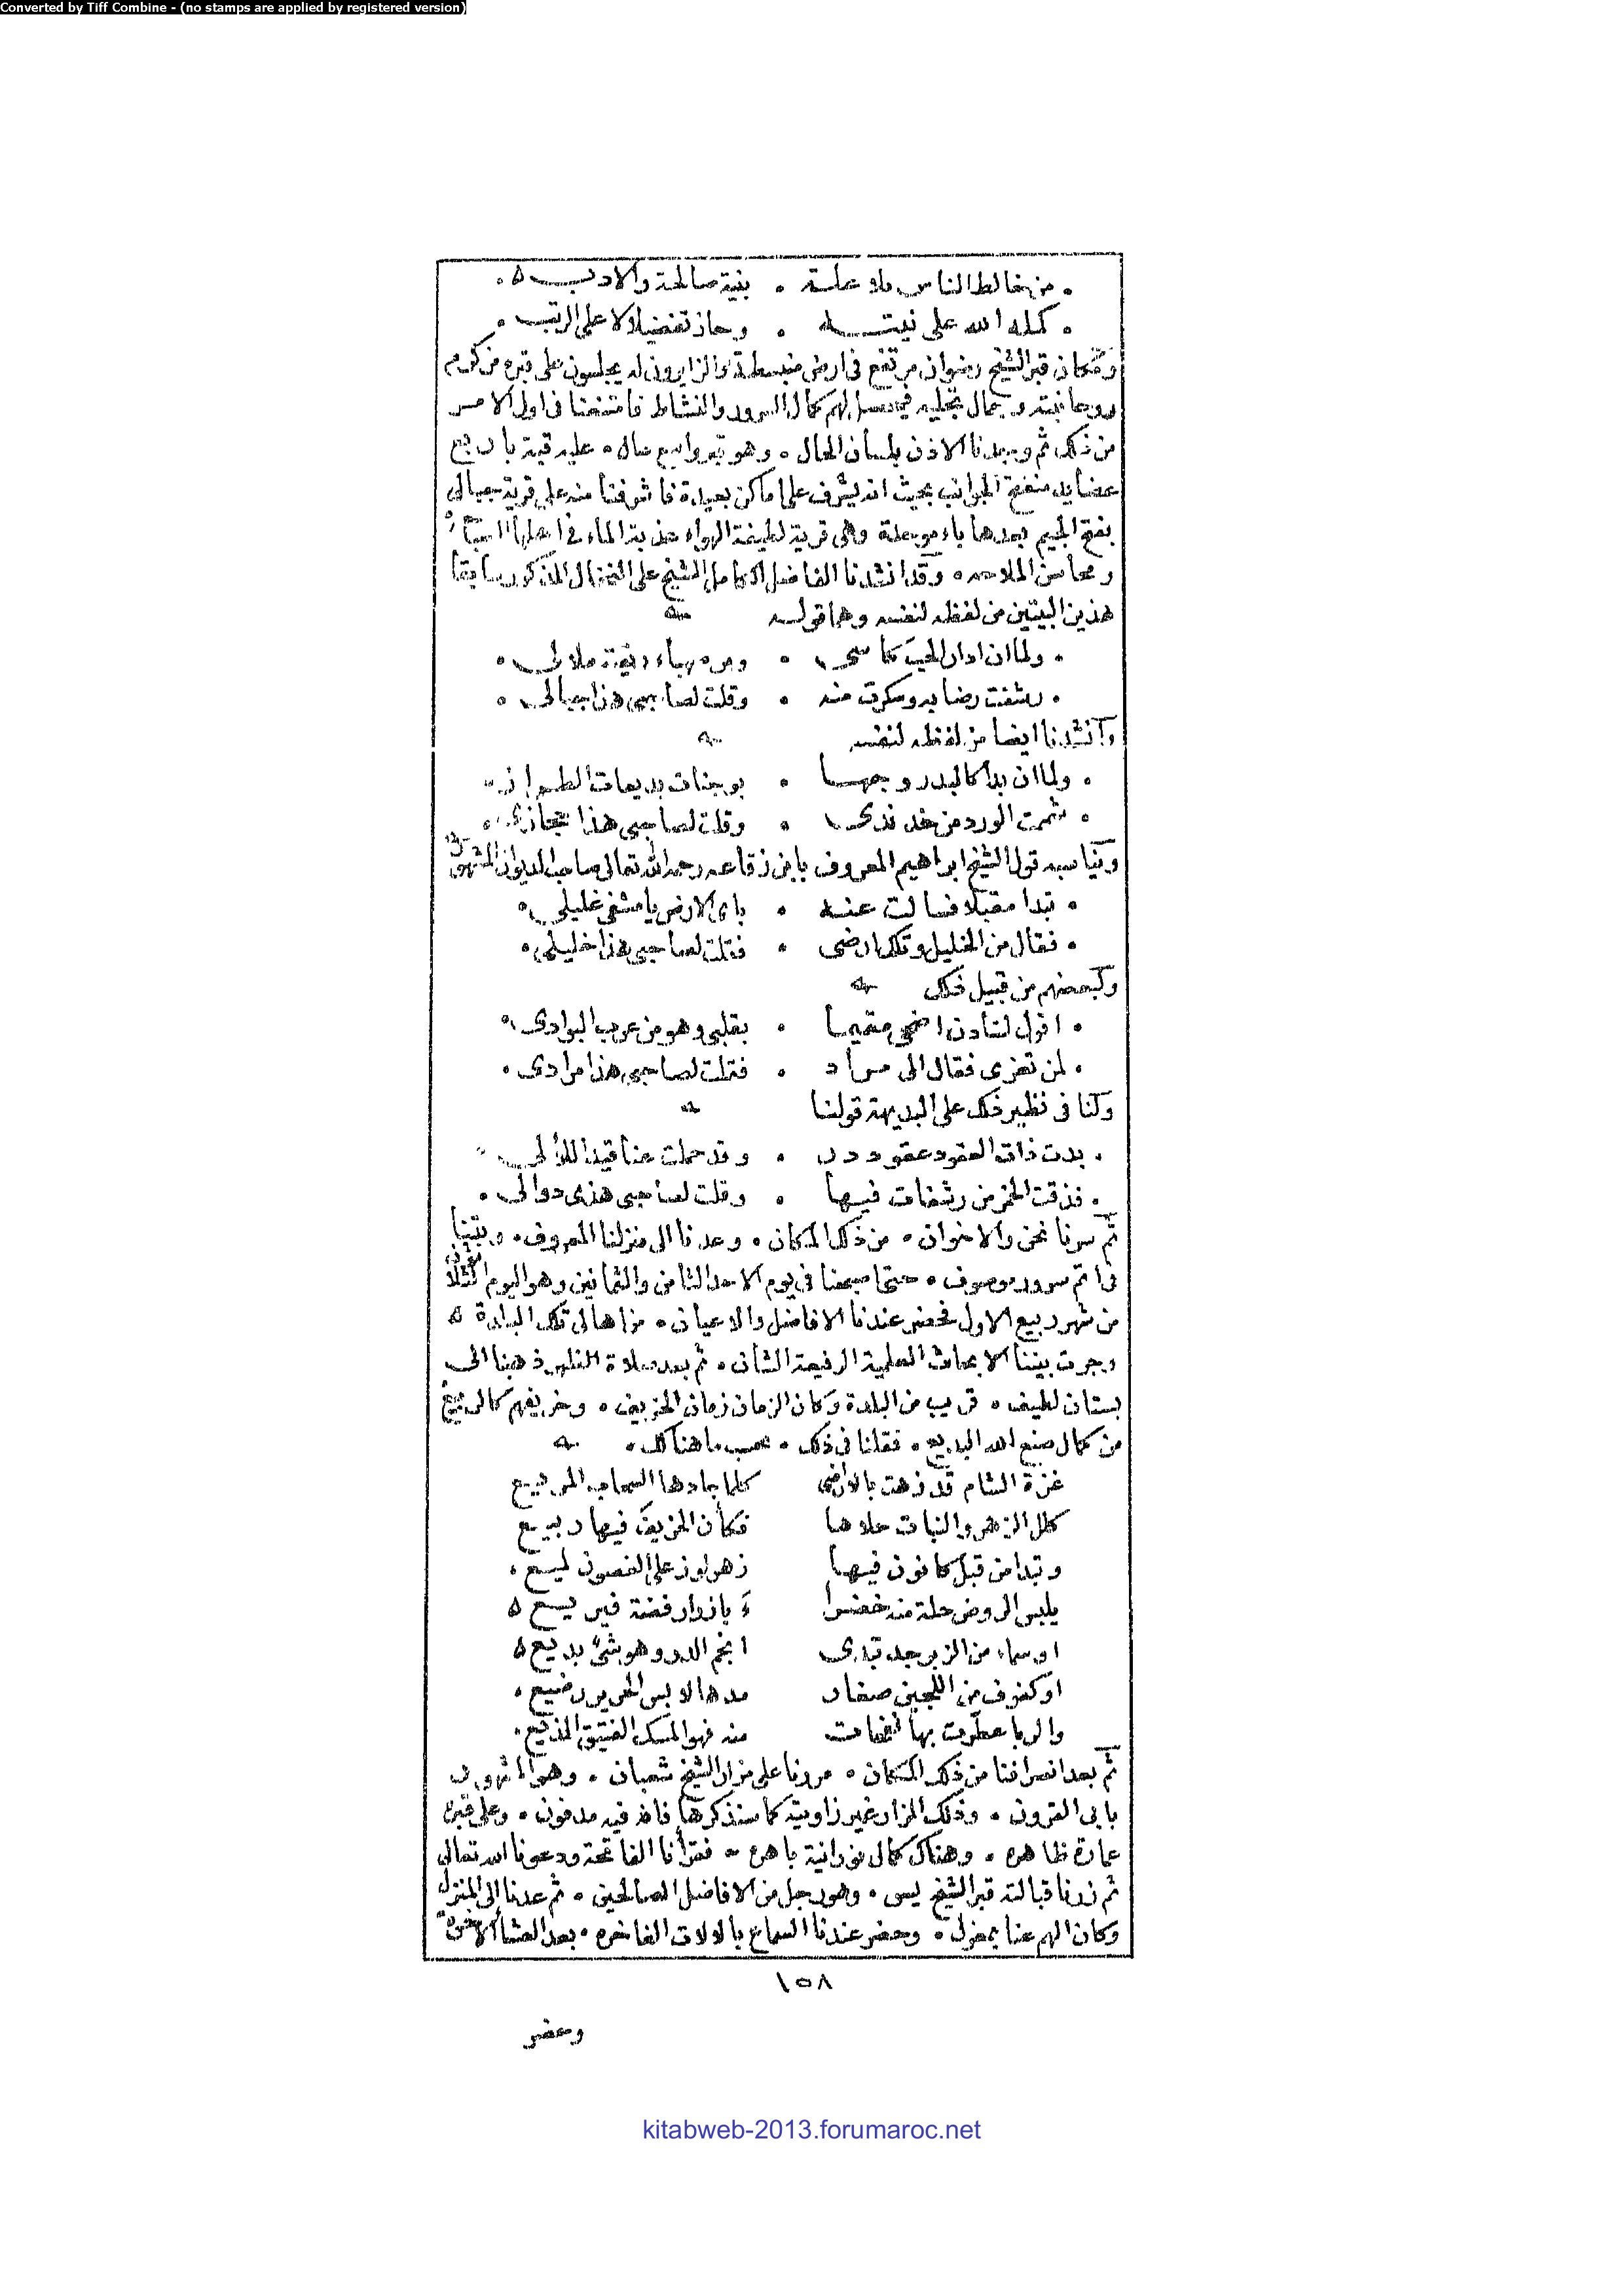 Converted by Tiff Combine - (no stamps are applied by registered version)
من خالط الناس بلا علة • بنية صالحة والادب
كمله الله على نيته • وحاز تفضيلا لاعلى الرتب
ومكان قبر الشيخ رضوان مرتفع فى ارض منبسطة والزايرون له يجلسون على قبره من كرم
روحانيته وجمال تجليه فيحصل لهم كمال السرور والنشاط فامتنعنا فى اول الامر
من ذلك ثم وجدنا الاذن بلسان الحال • وهو قبر واسع عال • عليه قبة باربع
عضايد منفتح الجوانب بحيث انه يشرف على اماكن بعيدة فاشرفنا منه على قرية جبالى
بفتح الجيم بعدها باء موحدة وهى قرية لطيفة الهواء عذبة الماء فى اهلها
ومحاسن الملاحه • وقد انشدنا الفاضل الكامل الشيخ على النخال المذكور سابقا
هذين البيتين من لفظه لنفسه وهما قوله
• ولما ان ادار الحب كاسى • ملالى •
• رشفت رضابه وسكرت منه • وقلت لصاحبى هذا جبالى •
وانشدنا ايضا من لفظه لنفسه
• ولما ان بدا كالبدر وجها • بوجنات بديعات الطراز
• شممت الورد من خد ندى • وقلت لصاحبى هذا حجازى
ويناسبه قول الشيخ ابراهيم المعروف بابن زقاعه رحمه الله تعالى صاحب الديوان المشهور
• تبدا مقبلا فسالت عنه • باى الارض يا مشفى غليلى •
• فقال من الخليل وتلك ارضى • فقلت لصاحبى هذا خليلى •
ولبعضهم من قبيل ذلك
• اقول لشادن اضحى مقيما • بقلبى وهو من عرب البوادى •
• لمن تعزى فقال الى مراد • فقلت لصاحبى هذا مرادى •
ولنا فى نظير ذلك على البديهة قولنا
• بدت ذات العقود عقود در • وقد حملت عناقيد اللآلى
• فذقت الخمر من رشفات فيها • وقلت لصاحبى هذى دوالى •
ثم سرنا نحن والاخوان • من ذلك المكان • وعدنا الى منزلنا المعروف • وبتنا
فى اتم سرور موصوف • حتى اصبحنا فى يوم الاحد الثامن والثمانين وهو اليوم
من شهر ربيع الاول فحضر عندنا الافاضل والاعيان • من اهالى تلك البلدة
وجرت بيننا الابحاث العلمية الرفيعة الشان • ثم بعد صلاة الظهر ذهبنا الى
بستان لطيف • قريب من البلدة وكان الزمان زمان الخريف • وخريفهم كالربيع
من كمال صنع الله البديع • فقلنا فى ذلك • حسب ما هنالك •
غزة الشام قد زهت بالاراضى كلما جادها السحاب المريع
كلل الزهر والنبات علاها فكأن الخريف فيها ربيع
وتبدا من قبل كانون فيها زهر لوز على الغصون لميع •
يلبس الروض حلة منه خضرا ء بازرار فضة
او سماء من الزبرجد تبدى انجم الدر وهو شئ بديع
او كفوف من اللجين صغار مدها لابس الحرير رضيع •
والربا عطرت بها نفحات منه فهو المسك الفتيق المذيع •
ثم بعد انصرافنا من ذلك المكان • مررنا على مزار الشيخ شعبان • وهو المشهور
بابى القرون • وذلك المزار غير زاويته كما سنذكرها فانه فيه مدفون • وعلى قبره
عمارة ظاهره • وهناك كمال نورانية باهره • فقرأنا الفاتحة ودعونا الله تعالى
ثم زرنا قبالته قبر الشيخ يس • وهو رجل من الافاضل الصالحين • ثم عدنا الى المنزل
وكان الهم عنا بمعزل • وحضر عندنا السماع بالالات الفاخره • بعد العشاء الاخره
١٥٨
وحضر
kitabweb-2013.forumaroc.net